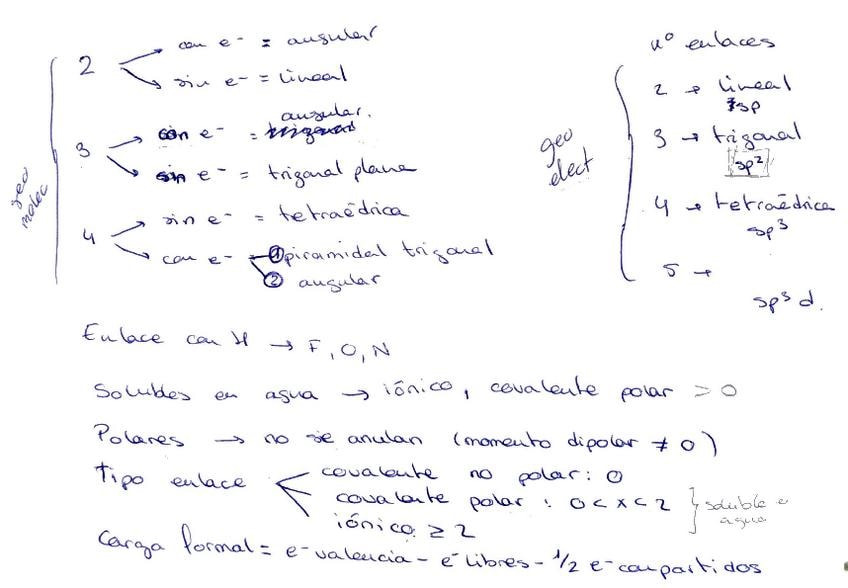 geo molec
2 → con e- = angular
→ sin e- = lineal
3 → con e- = angular.
→ sin e- = trigonal plana
4 → sin e- = tetraédrica
→ con e- ① piramidal trigonal
② angular
geo elect
nº enlaces
2 → lineal
sp
3 → trigonal
sp²
4 → tetraédrica
sp³
5 →
sp³ d.
Enlace con H → F, O, N
Solubles en agua → iónico, covalente polar > 0
Polares → no se anulan (momento dipolar ≠ 0)
Tipo enlace
covalente no polar: 0
covalente polar: 0 < x < 2
iónico: ≥ 2
soluble e
agua
Carga formal = e- valencia - e- libres - 1/2 e- compartidos